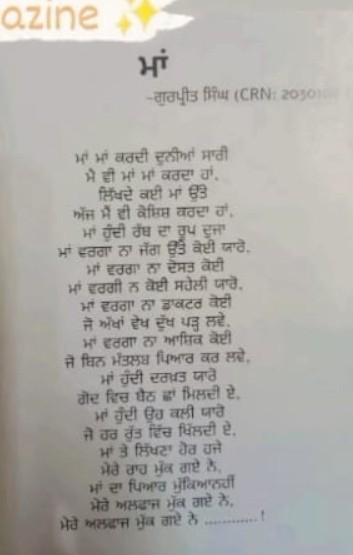 azine
ਮਾਂ
-ਗੁਰਪ੍ਰੀਤ ਸਿੰਘ (CRN: 2030
ਮਾਂ ਮਾਂ ਕਰਦੀ ਦੁਨੀਆਂ ਸਾਰੀ
ਮੈ ਵੀ ਮਾਂ ਮਾਂ ਕਰਦਾ ਹਾਂ,
ਲਿਖਦੇ ਕਈ ਮਾਂ ਉੱਤੇ
ਅੱਜ ਮੈਂ ਵੀ ਕੋਸ਼ਿਸ਼ ਕਰਦਾ ਹਾਂ,
ਮਾਂ ਹੁੰਦੀ ਰੱਬ ਦਾ ਰੂਪ ਦੂਜਾ
ਮਾਂ ਵਰਗਾ ਨਾ ਜੱਗ ਉੱਤੇ ਕੋਈ ਯਾਰੋ,
ਮਾਂ ਵਰਗਾ ਨਾ ਦੋਸਤ ਕੋਈ
ਮਾਂ ਵਰਗੀ ਨ ਕੋਈ ਸਹੇਲੀ ਯਾਰੋ,
ਮਾਂ ਵਰਗਾ ਨਾ ਡਾਕਟਰ ਕੋਈ
ਜੋ ਅੱਖਾਂ ਵੇਖ ਦੁੱਖ ਪੜ੍ਹ ਲਵੇ,
ਮਾਂ ਵਰਗਾ ਨਾ ਆਸ਼ਿਕ ਕੋਈ
ਜੋ ਬਿਨ ਮੱਤਲਬ ਪਿਆਰ ਕਰ ਲਵੇ,
ਮਾਂ ਹੁੰਦੀ ਦਰਖ਼ਤ ਯਾਰੋ
ਗੋਦ ਵਿਚ ਬੈਠ ਛਾਂ ਮਿਲਦੀ ਏ,
ਮਾਂ ਹੁੰਦੀ ਉਹ ਕਲੀ ਯਾਰੋ
ਜੋ ਹਰ ਰੁੱਤ ਵਿੱਚ ਖਿੱਲਦੀ ਏ,
ਮਾਂ ਤੇ ਲਿਖਣਾ ਹੋਰ ਹਜੇ
ਮੇਰੇ ਰਾਹ ਮੁੱਕ ਗਏ ਨੇ,
ਮਾਂ ਦਾ ਪਿਆਰ ਮੁੱਕਿਆਨਹੀਂ
ਮੇਰੇ ਅਲਫਾਜ ਮੁੱਕ ਗਏ ਨੇ,
ਮੇਰੇ ਅਲਫਾਜ ਮੁੱਕ ਗਏ ਨੇ ............!